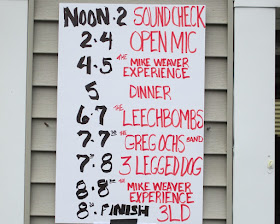 NOON·2 SOUNDCHECK
2·4 OPEN MIC
4·5 THE MIKE WEAVER EXPERIENCE
5 DINNER
6·7 THE LEECHBOMBS
7·7³⁰ THE GREG OCHS BAND
7³⁰·8 3 LEGGED DOG
8·8³⁰ THE MIKE WEAVER EXPERIENCE
8³⁰·FINISH 3LD